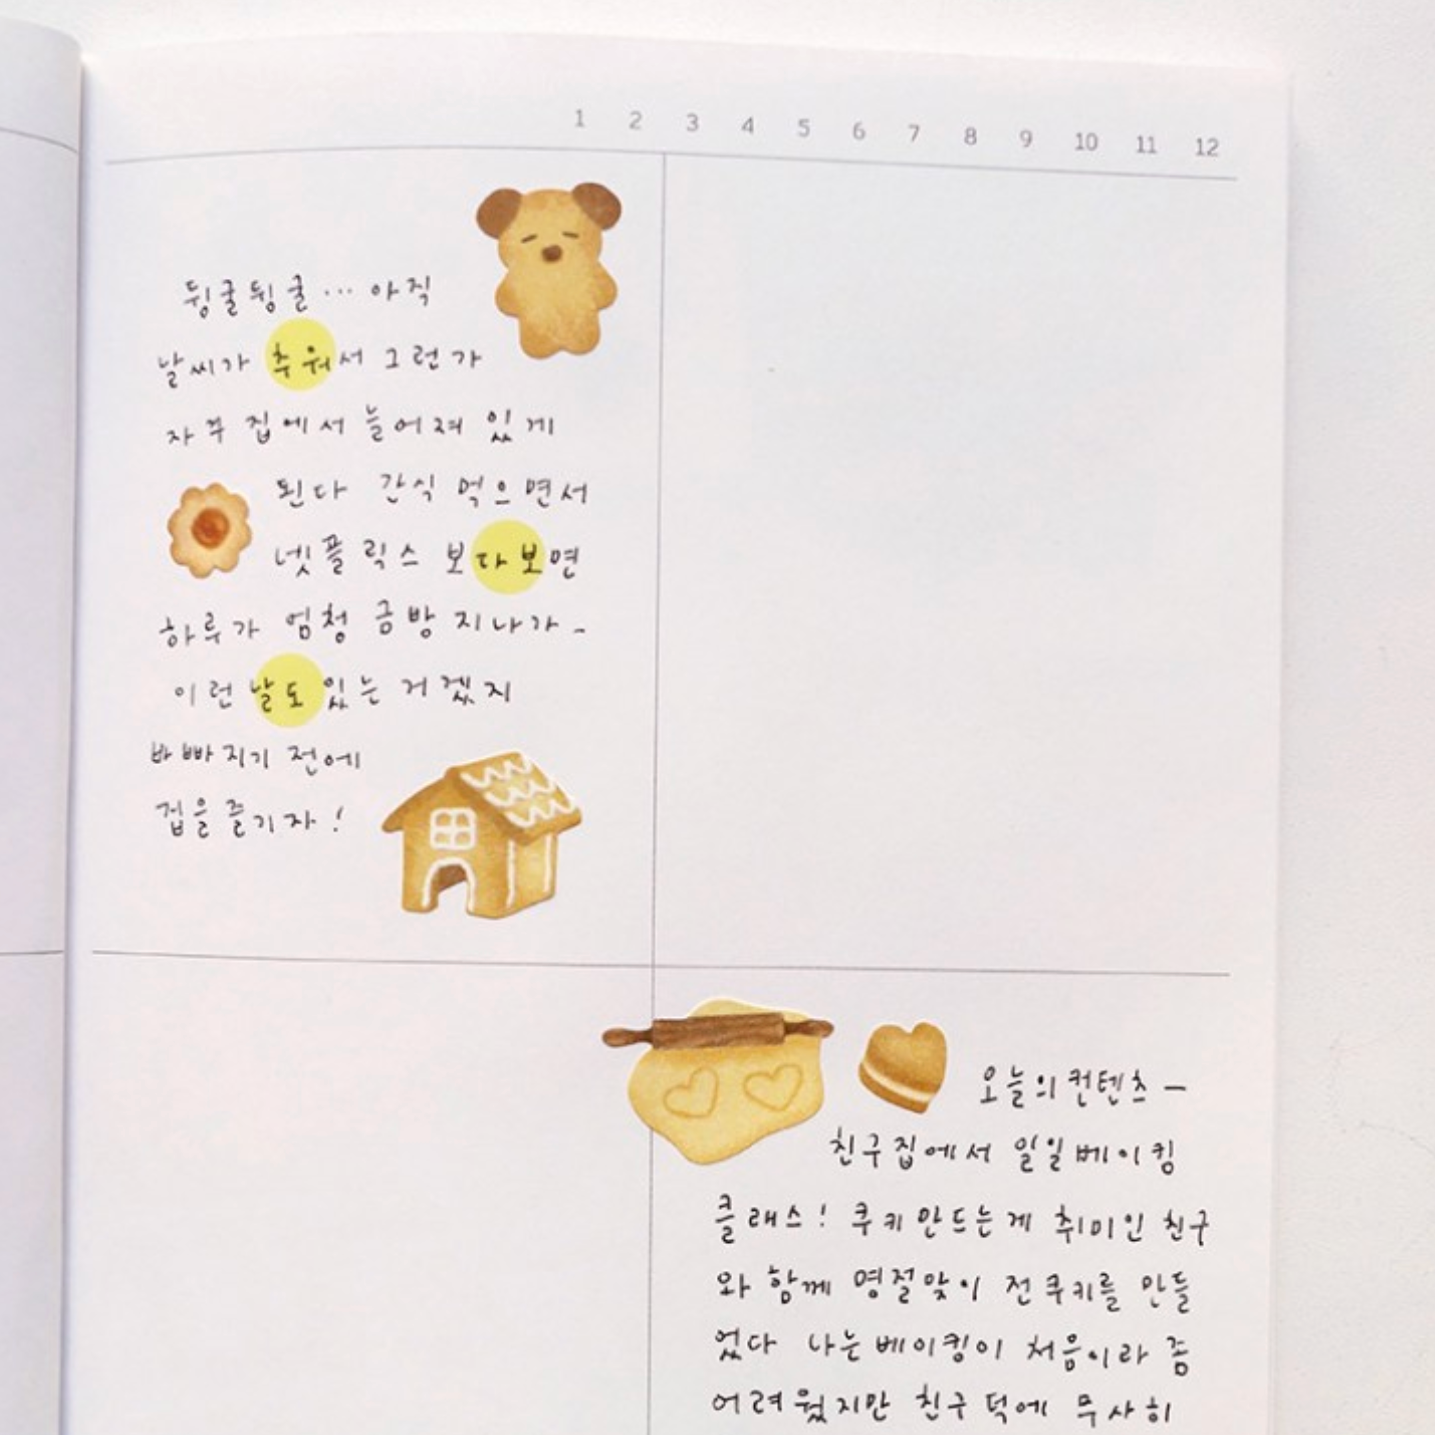 1 2 3 4 5 6 7 8 9 10 11 12
뒹굴뒹굴… 아직
날씨가 추워서 그런가
자주 집에서 늘어져 있게
된다 간식 먹으면서
넷플릭스 보다보면
하루가 엄청 금방 지나가-
이런 날도 있는 거겠지
바빠지기 전에
겁을 즐기자!
오늘의 컨텐츠 -
친구집에서 일일베이킹
클래스! 쿠키 만드는게 취미인 친구
와 함께 명절맞이 전쿠키를 만들
었다 나는 베이킹이 처음이라 좀
어려웠지만 친구 덕에 무사히